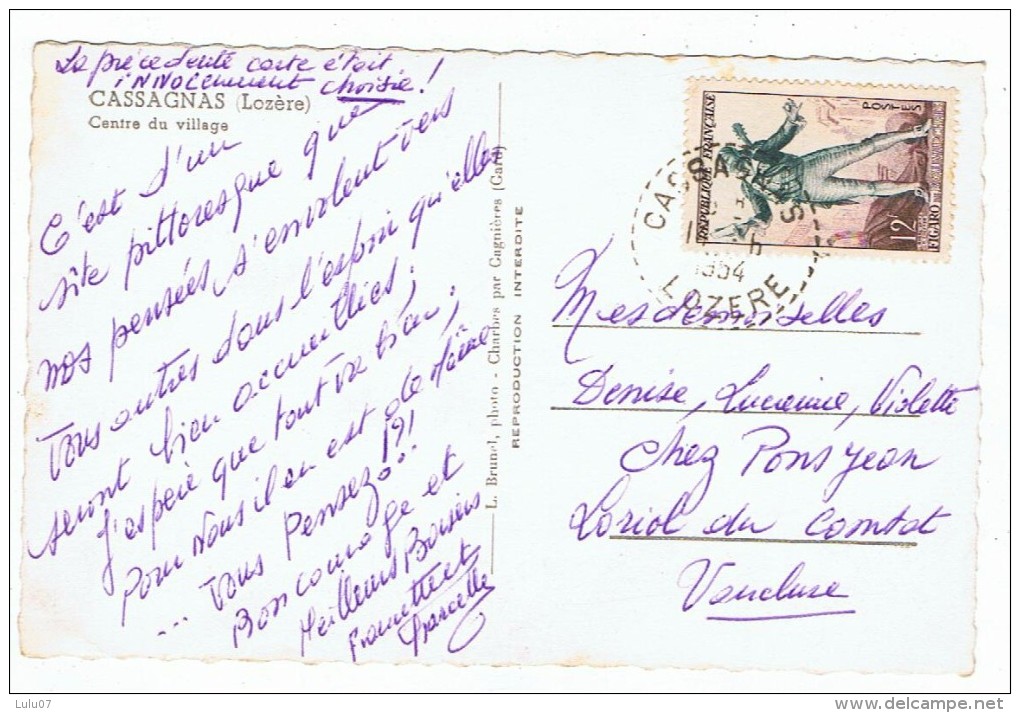 La précédente carte était
innocemment choisie !
CASSAGNAS (Lozère)
Centre du village
C'est d'un
site pittoresque que
nos pensées s'envolent vers
vous autres dans l'espoir qu'elles
seront bien accueillies ;
J'espère que tout va bien ;
Pour Nous il en est de même
... Vous Pensez !?!
Bon courage et
Meilleurs Baisers
Francette et
Marcelle
L. Brunel, photo - Charbes par Cagnières (Gard)
REPRODUCTION INTERDITE
REPUBLIQUE FRANÇAISE
POSTES
12F
FIGARO
CASSAGNAS
1954
LOZERE
Mesdemoiselles
Denise, Lucienne, Violette
chez Pons Jean
Loriol du Comtat
Vaucluse
Lulu07
delcampe.net